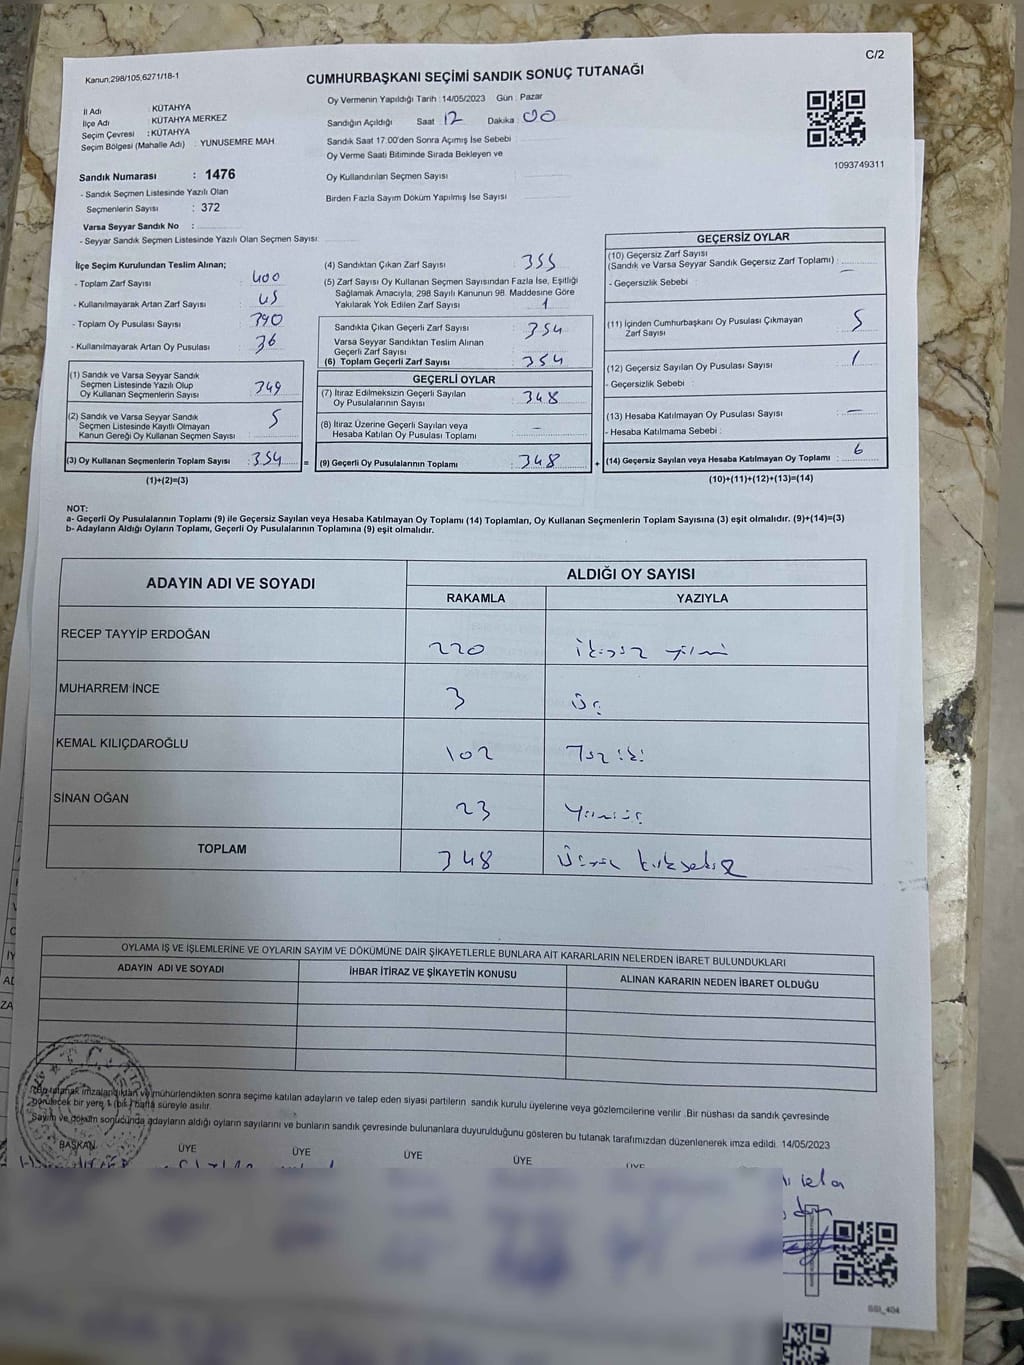 C/2
Kanun:298/105,6271/18-1
CUMHURBAŞKANI SEÇİMİ SANDIK SONUÇ TUTANAĞI
İl Adı : KÜTAHYA
İlçe Adı : KÜTAHYA MERKEZ
Seçim Çevresi : KÜTAHYA
Seçim Bölgesi (Mahalle Adı) : YUNUSEMRE MAH
Oy Vermenin Yapıldığı Tarih : 14/05/2023 Gün : Pazar
Sandığın Açıldığı Saat 12 Dakika : 00
Sandık Saat 17:00'den Sonra Açımış İse Sebebi
Oy Verme Saati Bitiminde Sırada Bekleyen ve
Oy Kullandırılan Seçmen Sayısı
Birden Fazla Sayım Döküm Yapılmış İse Sayısı
1093749311
Sandık Numarası : 1476
- Sandık Seçmen Listesinde Yazılı Olan
Seçmenlerin Sayısı : 372
Varsa Seyyar Sandık No :
- Seyyar Sandık Seçmen Listesinde Yazılı Olan Seçmen Sayısı:
İlçe Seçim Kurulundan Teslim Alınan;
- Toplam Zarf Sayısı : 400
- Kullanılmayarak Artan Zarf Sayısı : 45
- Toplam Oy Pusulası Sayısı : 390
- Kullanılmayarak Artan Oy Pusulası : 36
(1) Sandık ve Varsa Seyyar Sandık
Seçmen Listesinde Yazılı Olup
Oy Kullanan Seçmenlerin Sayısı : 349
(2) Sandık ve Varsa Seyyar Sandık
Seçmen Listesinde Kayıtlı Olmayan
Kanun Gereği Oy Kullanan Seçmen Sayısı : 5
(3) Oy Kullanan Seçmenlerin Toplam Sayısı : 354
(1)+(2)=(3)
(4) Sandıktan Çıkan Zarf Sayısı : 355
(5) Zarf Sayısı Oy Kullanan Seçmen Sayısından Fazla İse, Eşitliği
Sağlamak Amacıyla, 298 Sayılı Kanunun 98. Maddesine Göre
Yakılarak Yok Edilen Zarf Sayısı : 1
Sandıkta Çıkan Geçerli Zarf Sayısı : 354
Varsa Seyyar Sandıktan Teslim Alınan
Geçerli Zarf Sayısı :
(6) Toplam Geçerli Zarf Sayısı : 354
GEÇERLİ OYLAR
(7) İtiraz Edilmeksizin Geçerli Sayılan
Oy Pusulalarının Sayısı : 348
(8) İtiraz Üzerine Geçerli Sayılan veya
Hesaba Katılan Oy Pusulası Toplamı : –
= (9) Geçerli Oy Pusulalarının Toplamı : 348
GEÇERSİZ OYLAR
(10) Geçersiz Zarf Sayısı
(Sandık ve Varsa Seyyar Sandık Geçersiz Zarf Toplamı) : –
- Geçersizlik Sebebi :
(11) İçinden Cumhurbaşkanı Oy Pusulası Çıkmayan
Zarf Sayısı : 5
(12) Geçersiz Sayılan Oy Pusulası Sayısı : 1
- Geçersizlik Sebebi :
(13) Hesaba Katılmayan Oy Pusulası Sayısı : –
- Hesaba Katılmama Sebebi :
+ (14) Geçersiz Sayılan veya Hesaba Katılmayan Oy Toplamı : 6
(10)+(11)+(12)+(13)=(14)
NOT:
a- Geçerli Oy Pusulalarının Toplamı (9) ile Geçersiz Sayılan veya Hesaba Katılmayan Oy Toplamı (14) Toplamları, Oy Kullanan Seçmenlerin Toplam Sayısına (3) eşit olmalıdır. (9)+(14)=(3)
b- Adayların Aldığı Oyların Toplamı, Geçerli Oy Pusulalarının Toplamına (9) eşit olmalıdır.
ADAYIN ADI VE SOYADI
ALDIĞI OY SAYISI
RAKAMLA YAZIYLA
RECEP TAYYİP ERDOĞAN 220 ikiyüz yirmi
MUHARREM İNCE 3 Üç
KEMAL KILIÇDAROĞLU 102 Yüz iki
SİNAN OĞAN 23 Yirmiüç
TOPLAM 348 Üçyüz kırksekiz
OYLAMA İŞ VE İŞLEMLERİNE VE OYLARIN SAYIM VE DÖKÜMÜNE DAİR ŞİKAYETLERLE BUNLARA AİT KARARLARIN NELERDEN İBARET BULUNDUKLARI
ADAYIN ADI VE SOYADI İHBAR İTİRAZ VE ŞİKAYETİN KONUSU ALINAN KARARIN NEDEN İBARET OLDUĞU
İşbu tutanak imzalandıktan ve mühürlendikten sonra seçime katılan adayların ve talep eden siyasi partilerin sandık kurulu üyelerine veya gözlemcilerine verilir. Bir nüshası da sandık çevresinde
görülecek bir yere 1 (bir) hafta süreyle asılır.
Sayım ve döküm sonucunda adayların aldığı oyların sayılarını ve bunların sandık çevresinde bulunanlara duyurulduğunu gösteren bu tutanak tarafımızdan düzenlenerek imza edildi. 14/05/2023
BAŞKAN ÜYE ÜYE ÜYE ÜYE ÜYE